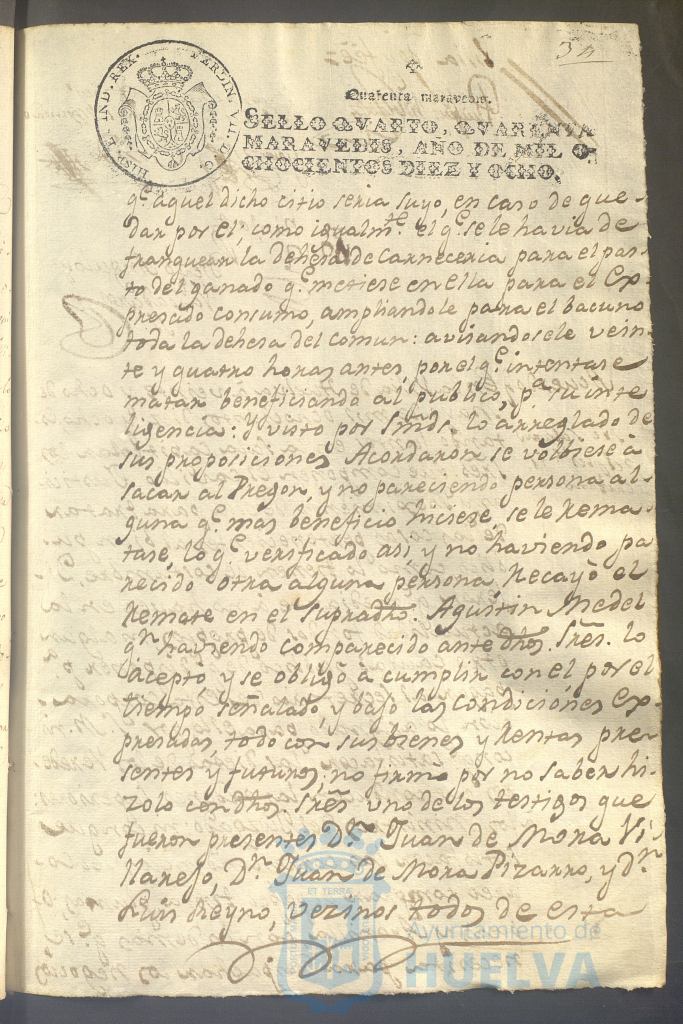 34
HISP. ET IND. REX. FERDIN. VII. D. G.
Quarenta maravedis.
SELLO QVARTO, QVARENTA
MARAVEDIS, AÑO DE MIL O-
CHOCIENTOS DIEZ Y OCHO.
q.e aquel dicho citio seria suyo, en caso de que-
dar por el; como igualm.te el q.e se le havia de
franquear la dehesa de Carneceria para el pas-
to del ganado q.e metiese en ella para el Ex-
presado consumo, ampliandole para el bacuno
toda la dehesa del comun: avisandosele vein-
te y quatro horas antes, por el q.e intentase
matar beneficiando al publico, p.a su inte
ligencia: Y visto por Smds. lo arreglado de
sus proposiciones Acordaron se volbiese à
sacar al Pregon, y no pareciendo persona al-
guna q.e mas beneficio hiciese, se le Rema-
tase, lo q.e verificado asi, y no haviendo pa
recido otra alguna persona, Recayò el
Remate en el supradho. Agustin Medel
q.n haviendo comparecido ante dhos. Sres. lo
acepto, y se obligò à cumplir con el por el
tiempo señalado, y bajo las condiciones Ex-
presadas, todo con sus bienes y Rentas pre-
sentes y futuros; no firmo por no saber hi-
zolo con dhos. Sres. uno de los testigos que
fueron presentes D.n Juan de Mora Vi-
llarejo, D.n Juan de Mora Pizarro, y d.n
Luis Reyno, vezinos todos de esta
ET TERRÆ
Ayuntamiento de
HUELVA